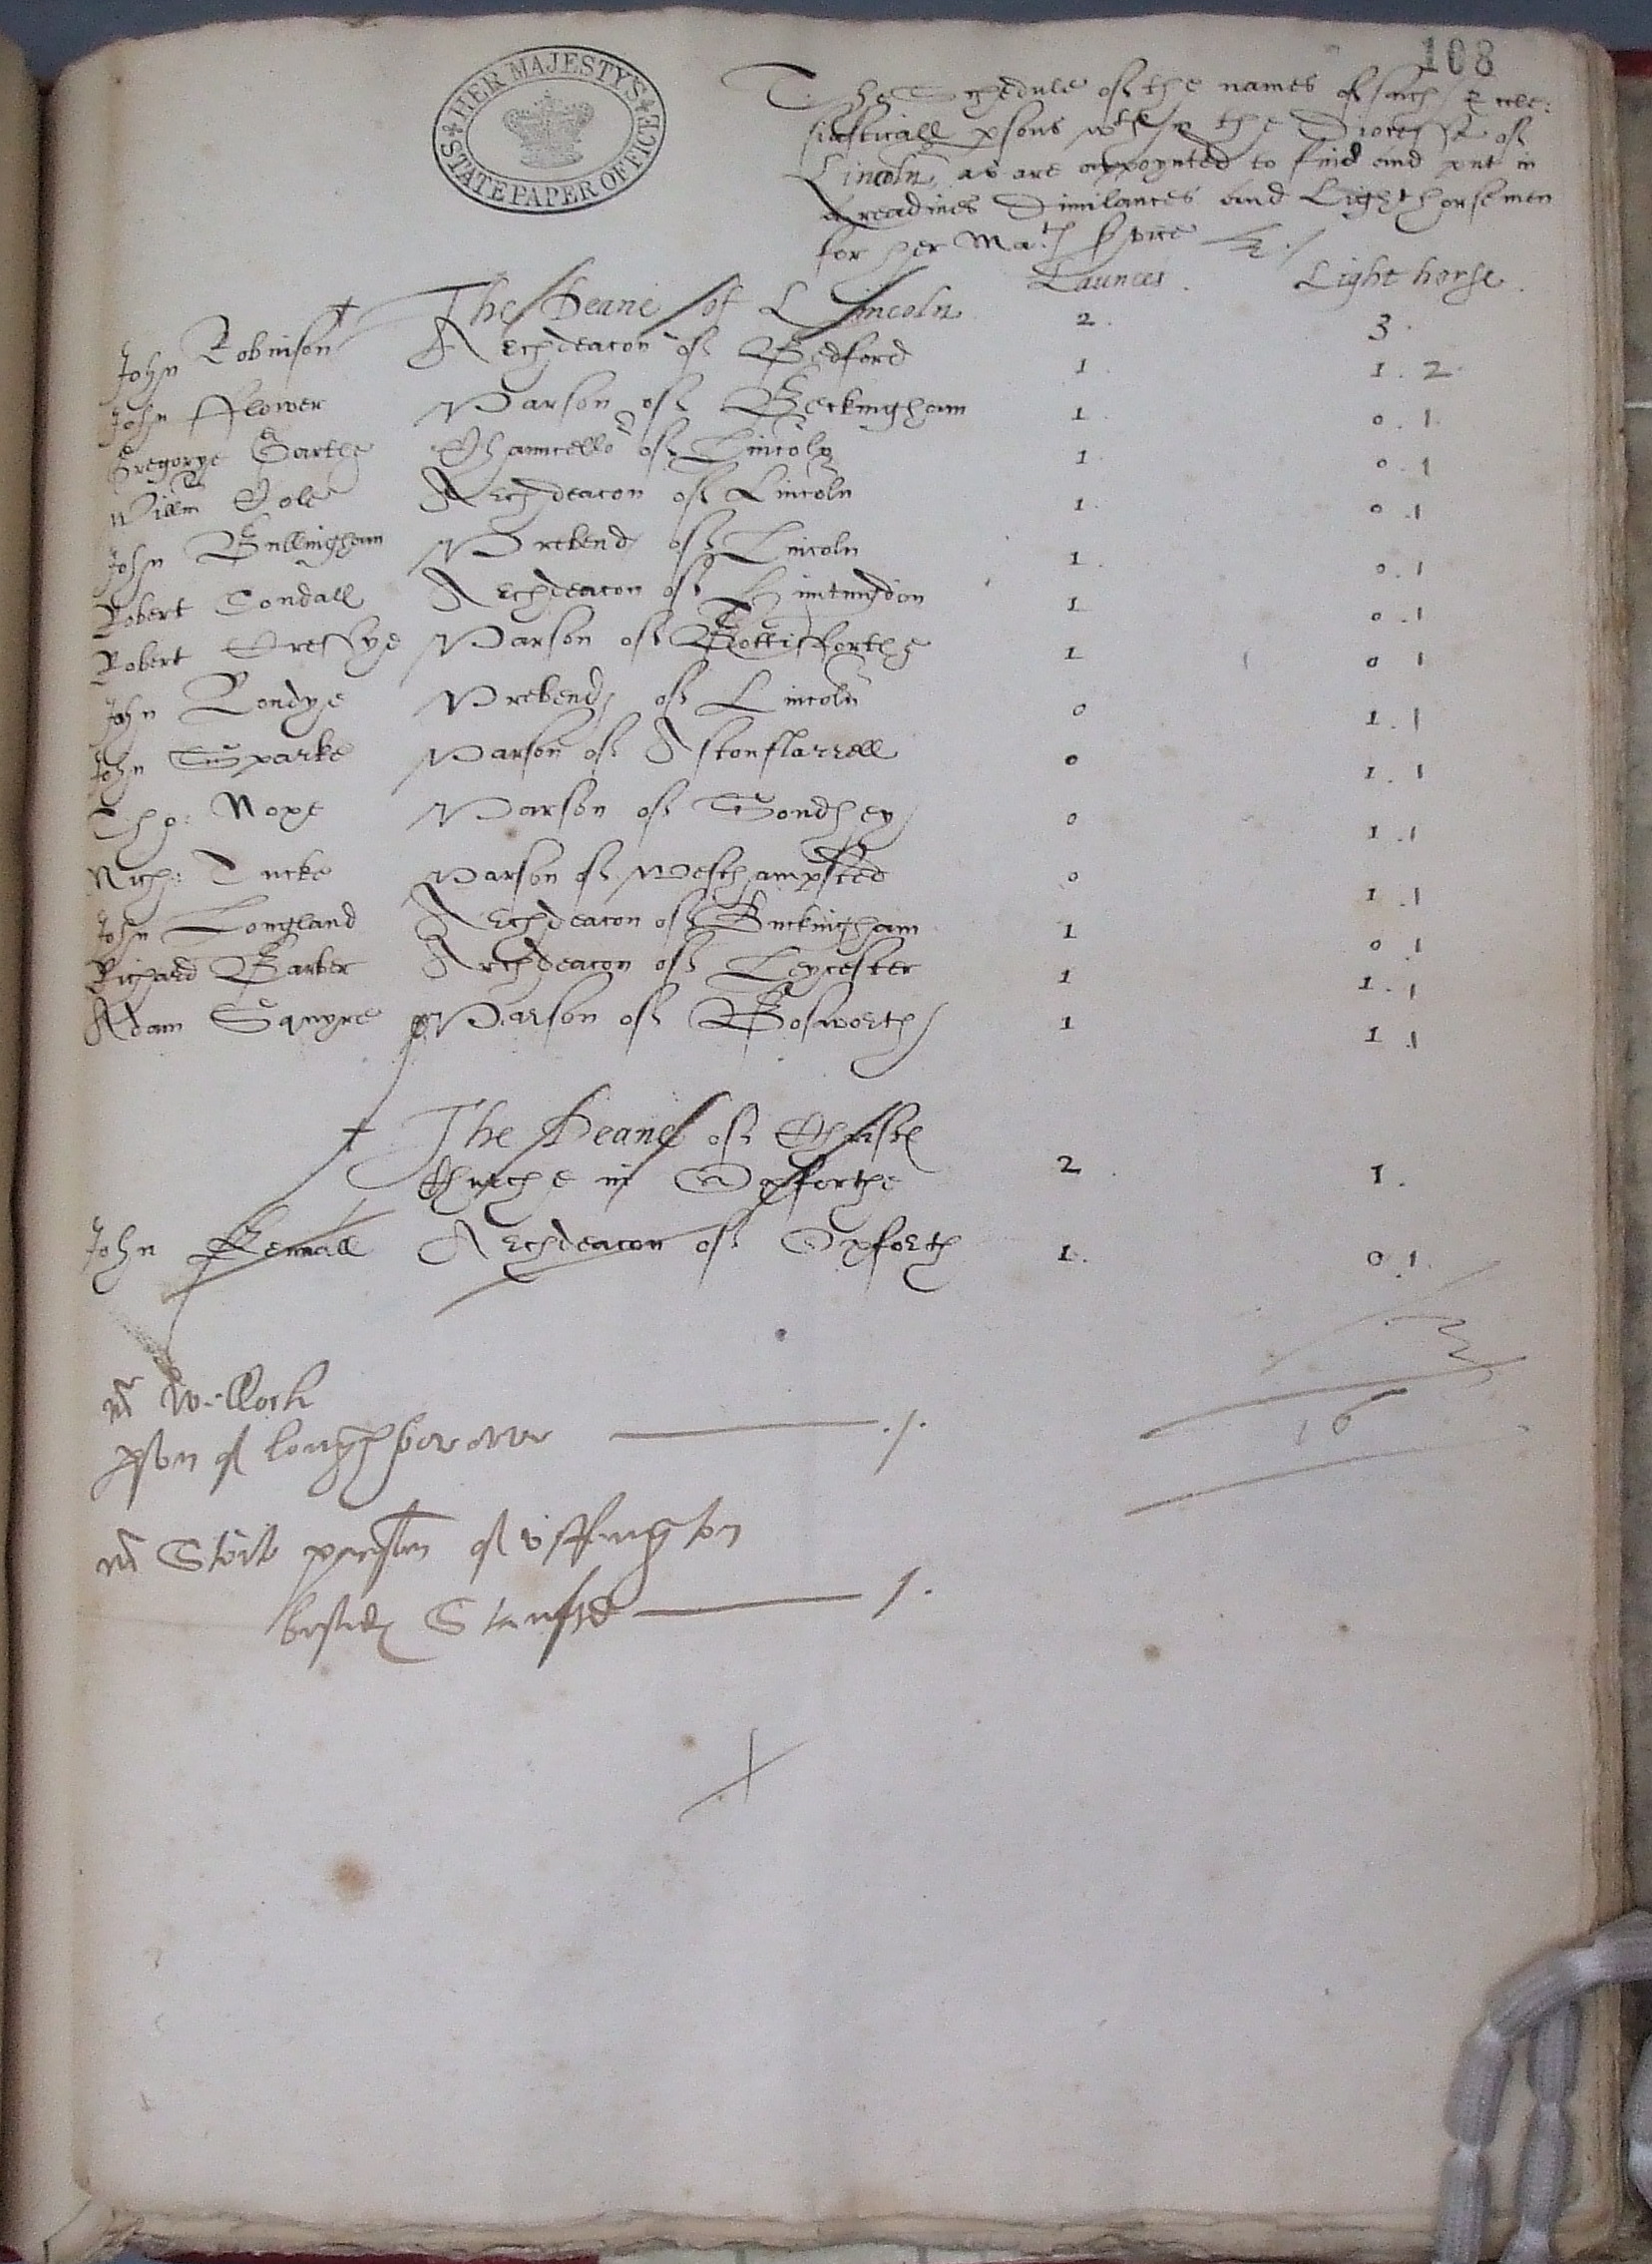 108
HER MAJESTY'S STATE PAPER OFFICE
The Schedule of the names of such Eccle:
siasticall psons wthin the Diocesse of
Lincoln, as are appoynted to find and put in
a readines Dimilances and Lighthorsemen
for her Matz svice
Launces. Light horse.
The Deane of Lincoln 2. 3.
John Robinson Archdeacon of Bedford 1. 1. 2.
John Flower Parson of Beckingham 1. 0. 1.
Gregorye Garthe Chauncellor of Lincoln 1. 0. 1
Willm Cole Archdeacon of Lincoln 1. 0. 1
John Bullingham Prebend of Lincoln 1. 0. 1
Robert Condall Archdeacon of Huntingdon 1 0. 1
Robert Cressye Parson of Bottisforthe 1 0 1
John Prebend of Lincoln 0 1. 1
John Sparke Parson of Astonflarrell 0 1. 1
Tho: Parson of 0 1. 1
Rich: Tucke Parson of Westhampsted 0 1. 1
John Longland Archdeacon of Buckingham 1 0 1
Richard Barber Archdeacon of Leycester 1 1. 1
Adam Squyre Parson of Bosworth 1 1 1
The Deane of Christ
Churche in Oxforthe 2. 1.
John Kennall Archdeacon of Oxforth 1. 0. 1.
16
Mr Willock
pson of loughborowe 1.
Mr of Uffington
besides Stanford 1.